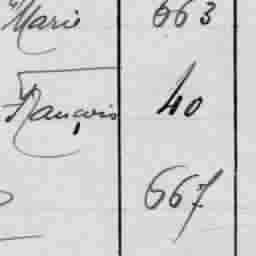 Marie 663
François 40
667